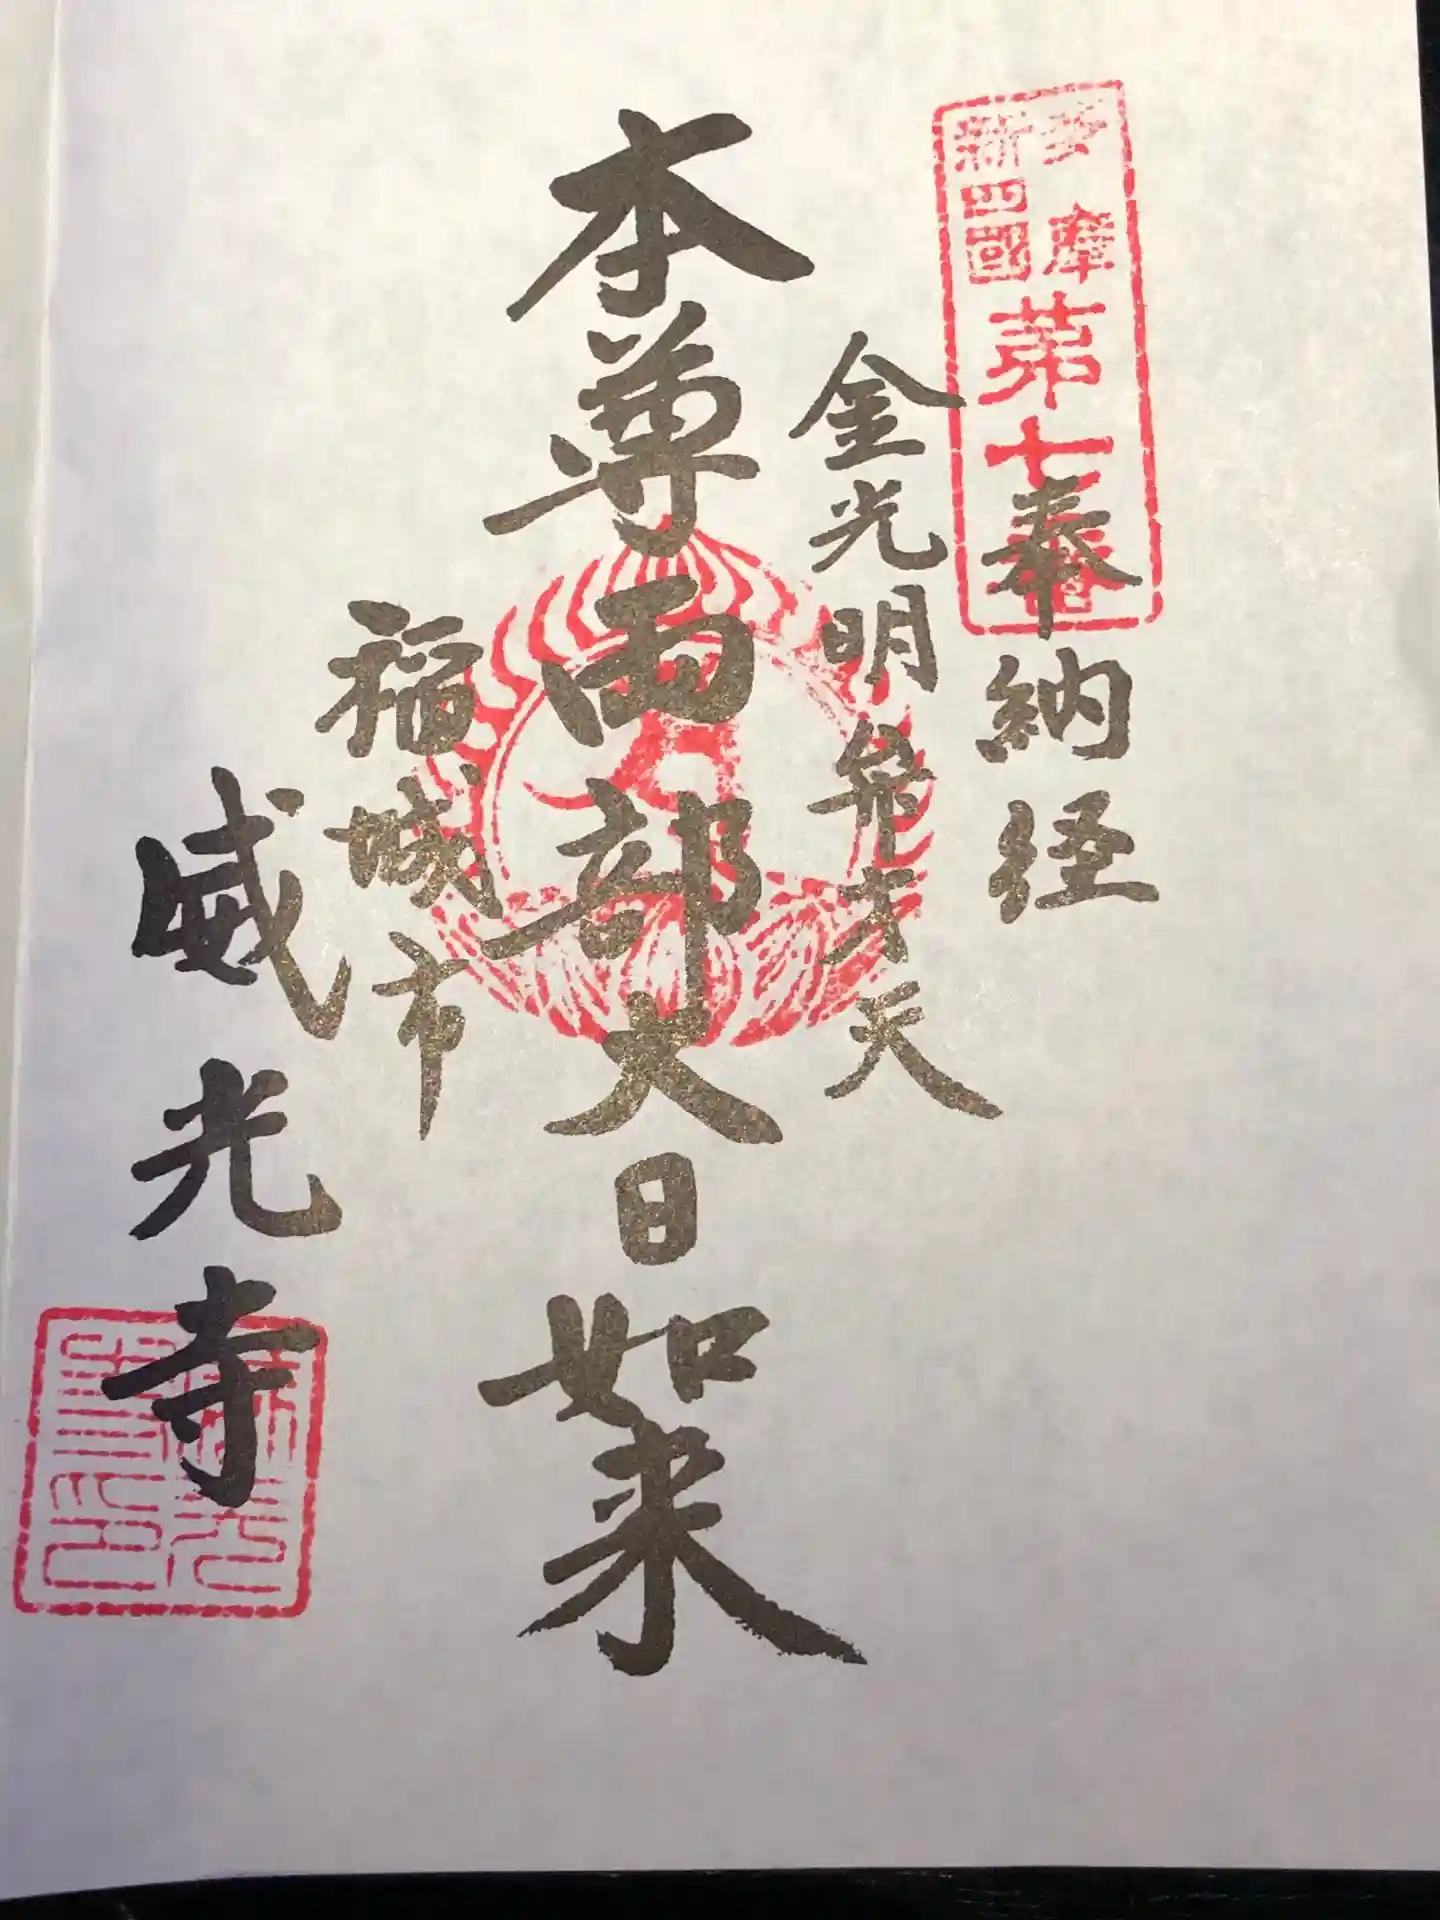 多摩
新四國
第七番
奉納経
金光明弁才天
本尊両部大日如来
稲城市
威光寺
威光
寺印